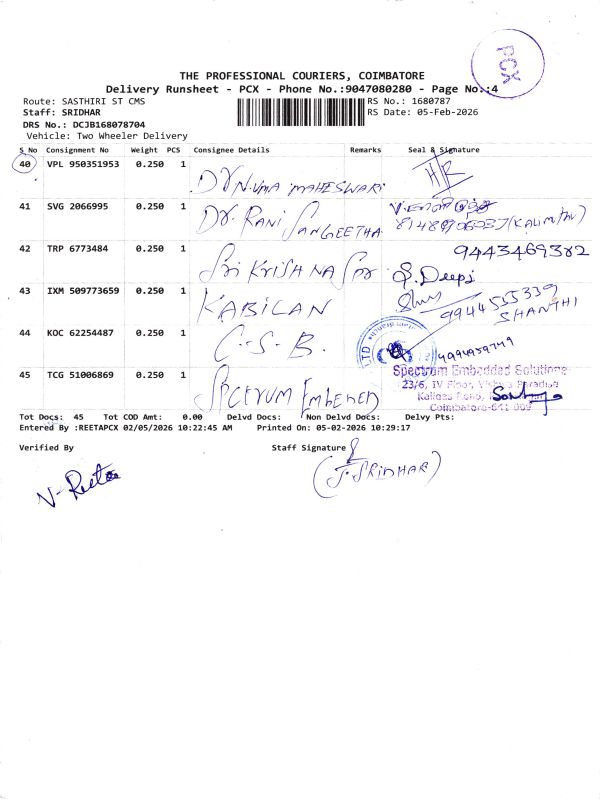 PCX
THE PROFESSIONAL COURIERS, COIMBATORE
Delivery Runsheet - PCX - Phone No.:9047080280 - Page No.:4
Route: SASTHIRI ST CMS
RS No.: 1680787
Staff: SRIDHAR
RS Date: 05-Feb-2026
DRS No.: DCJB168078704
Vehicle: Two Wheeler Delivery
S_No Consignment No Weight PCS Consignee Details Remarks Seal & Signature
40 VPL 950351953 0.250 1 DR N. UMA MAHESWARI HR
41 SVG 2066995 0.250 1 DR. RANI SANGEETHA
8148906037 (KALIMUTHU)
42 TRP 6773484 0.250 1 SRI KRISHNA 9443469382
S. Deepi
43 IXM 509773659 0.250 1 KABILAN 9944555339
SHANTHI
44 KOC 62254487 0.250 1 C.S.B. LTD
45 TCG 51006869 0.250 1 SPCTRUM EmbEDED Spectrum Embedded Solutions
23/6, IV Floor,
Coimbatore-641 009
Tot Docs: 45 Tot COD Amt: 0.00 Delvd Docs: Non Delvd Docs: Delvy Pts:
Entered By :REETAPCX 02/05/2026 10:22:45 AM Printed On: 05-02-2026 10:29:17
Verified By Staff Signature
V. Reeta (J. SRIDHAR)